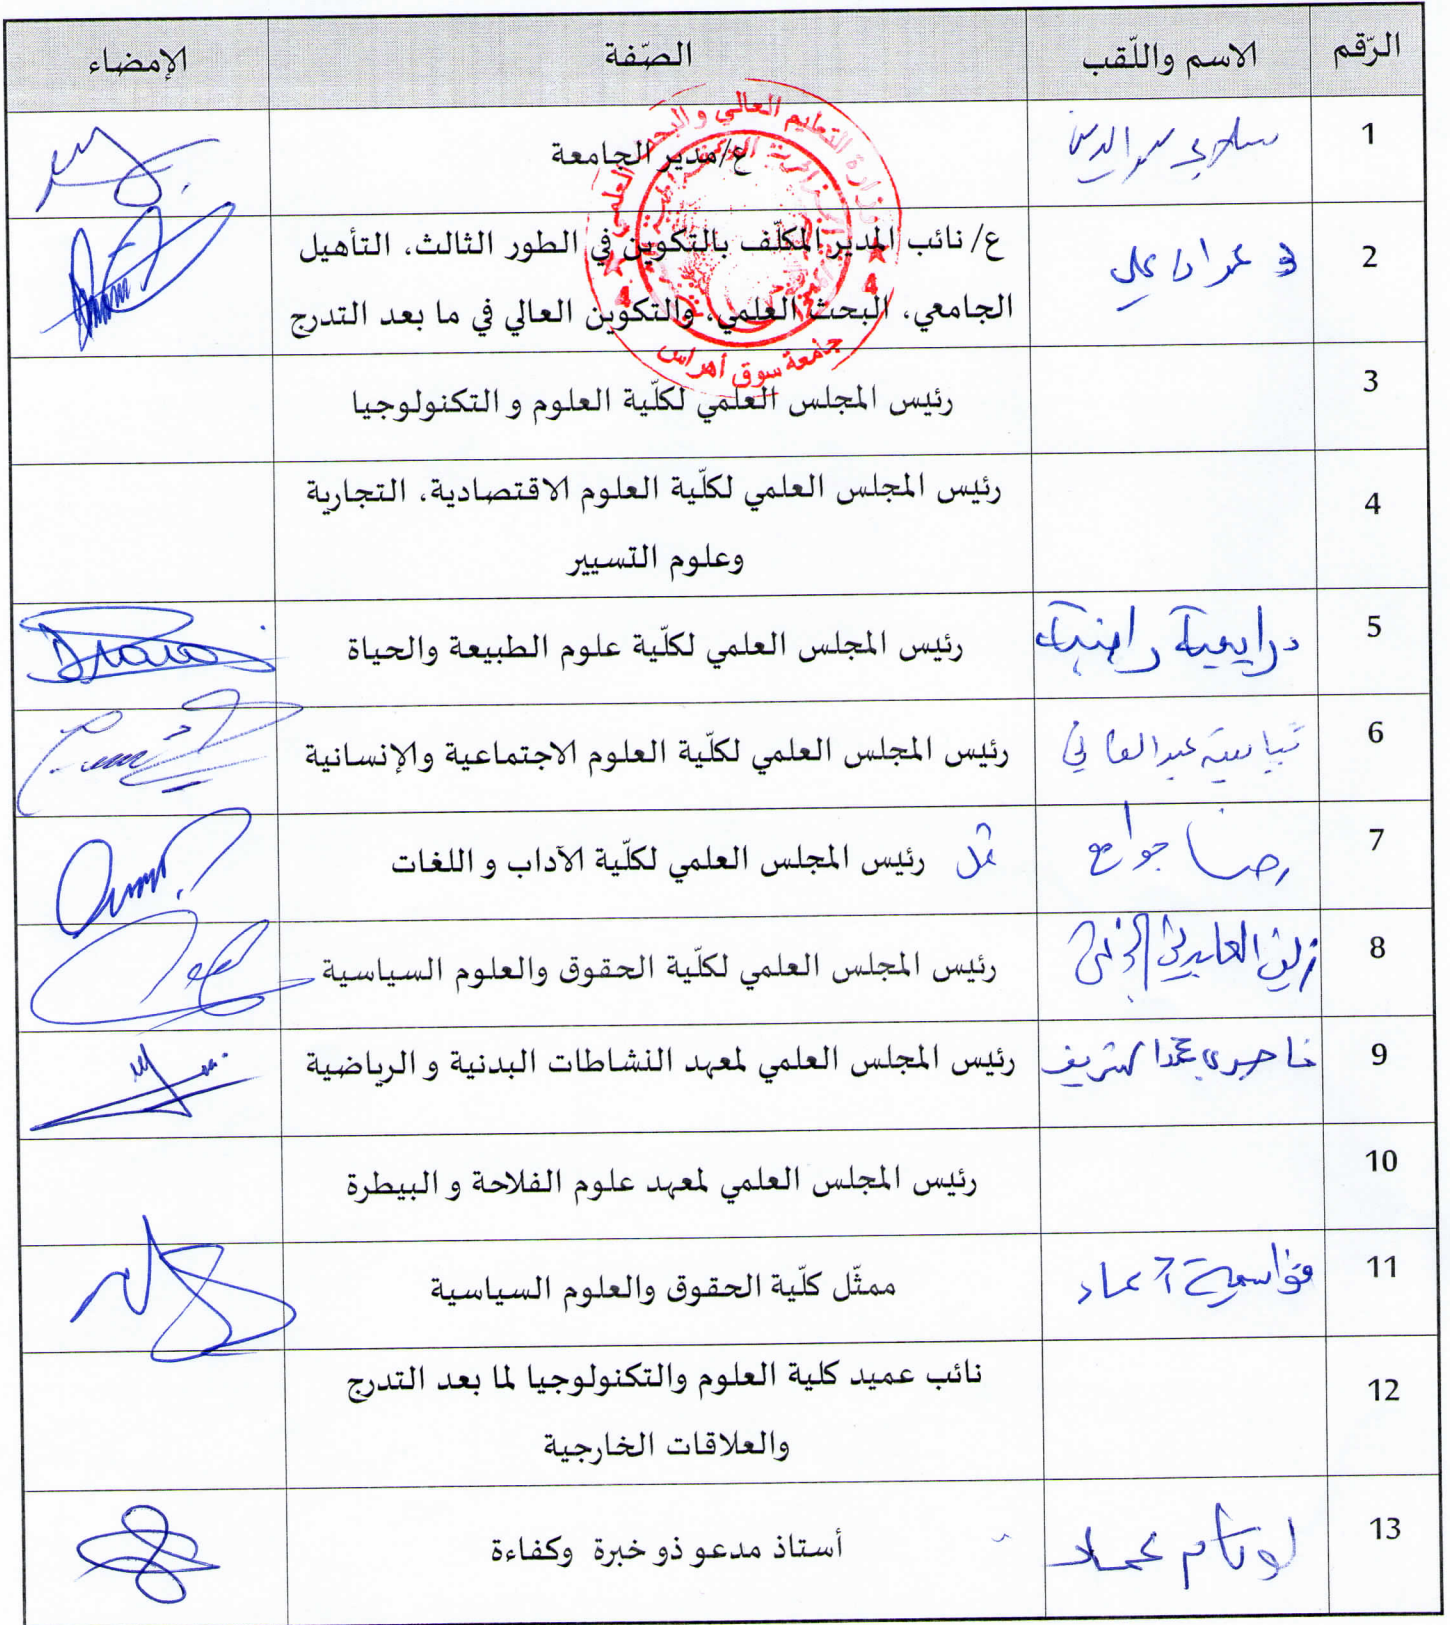 الرّقم الاسم واللّقب الصّفة الإمضاء
1 ع/مدير الجامعة
2 ع/ نائب المدير المكلّف بالتكوين في الطور الثالث، التأهيل
الجامعي، البحث العلمي، والتكوين العالي في ما بعد التدرج
جامعة سوق أهراس
3 رئيس المجلس العلمي لكلّية العلوم و التكنولوجيا
4 رئيس المجلس العلمي لكلّية العلوم الاقتصادية، التجارية
وعلوم التسيير
5 رئيس المجلس العلمي لكلّية علوم الطبيعة والحياة
6 رئيس المجلس العلمي لكلّية العلوم الاجتماعية والإنسانية
7 رضا جوامع رئيس المجلس العلمي لكلّية الآداب و اللغات
8 زين العابدين رئيس المجلس العلمي لكلّية الحقوق والعلوم السياسية
9 رئيس المجلس العلمي لمعهد النشاطات البدنية و الرياضية
10 رئيس المجلس العلمي لمعهد علوم الفلاحة و البيطرة
11 ممثّل كلّية الحقوق والعلوم السياسية
12 نائب عميد كلية العلوم والتكنولوجيا لما بعد التدرج
والعلاقات الخارجية
13 أستاذ مدعو ذو خبرة وكفاءة